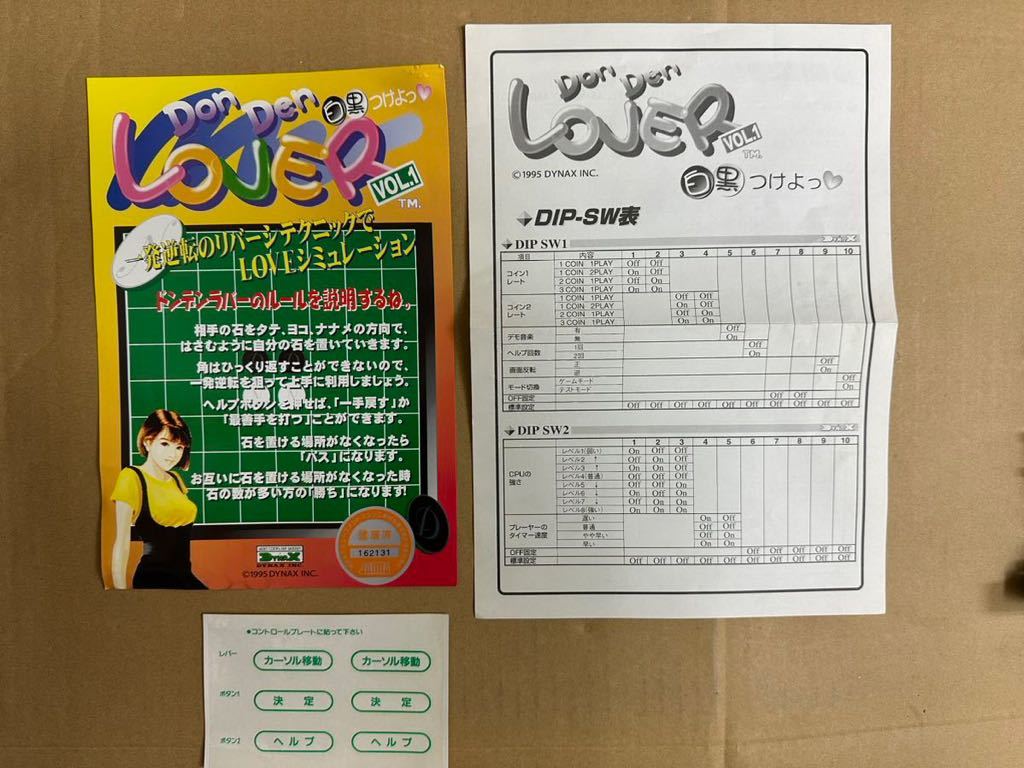 Don Den
白黒つけよっ
LOVER
VOL.1
TM.
一発逆転のリバーシテクニックで
LOVEシミュレーション
ドンデンラバーのルールを説明するね。
相手の石をタテ、ヨコ、ナナメの方向で、
はさむように自分の石を置いていきます。
角はひっくり返すことができないので、
一発逆転を狙って上手に利用しましょう。
ヘルプボタンを押せば、「一手戻す」か
「最善手を打つ」ことができます。
石を置ける場所がなくなったら
「パス」になります。
お互いに石を置ける場所がなくなった時
石の数が多い方の「勝ち」になります!
162131
DYNAX
DYNAX INC.
©1995 DYNAX INC.
Don Den
LOVER
VOL.1
TM.
©1995 DYNAX INC.
白黒つけよっ
DIP-SW表
DIP SW1
項目 内容 1 2 3 4 5 6 7 8 9 10
コイン1レート 1 COIN 1PLAY Off Off
1 COIN 2PLAY On Off
2 COIN 1PLAY Off On
3 COIN 1PLAY On On
コイン2レート 1 COIN 1PLAY Off Off
1 COIN 2PLAY On Off
2 COIN 1PLAY Off On
3 COIN 1PLAY On On
デモ音楽 有 Off
無 On
ヘルプ回数 1回 Off
2回 On
画面反転 正 Off
逆 On
モード切換 ゲームモード Off
テストモード On
OFF固定 Off Off
標準設定 Off Off Off Off Off Off Off Off Off Off
DIP SW2
1 2 3 4 5 6 7 8 9 10
CPUの強さ レベル1(弱い) On On Off
レベル2 ↑ Off On Off
レベル3 ↑ On Off Off
レベル4(普通) Off Off Off
レベル5 ↓ On On On
レベル6 ↓ Off On On
レベル7 ↓ Off On
レベル8(強い) On
プレーヤーのタイマー速度 遅い On Off
普通 Off Off
やや早い Off On
早い On On
OFF固定 Off Off Off Off Off
標準設定 Off Off Off Off Off Off Off Off Off Off
●コントロールプレートに貼って下さい
レバー カーソル移動 カーソル移動
ボタン1 決定 決定
ボタン2 ヘルプ ヘルプ